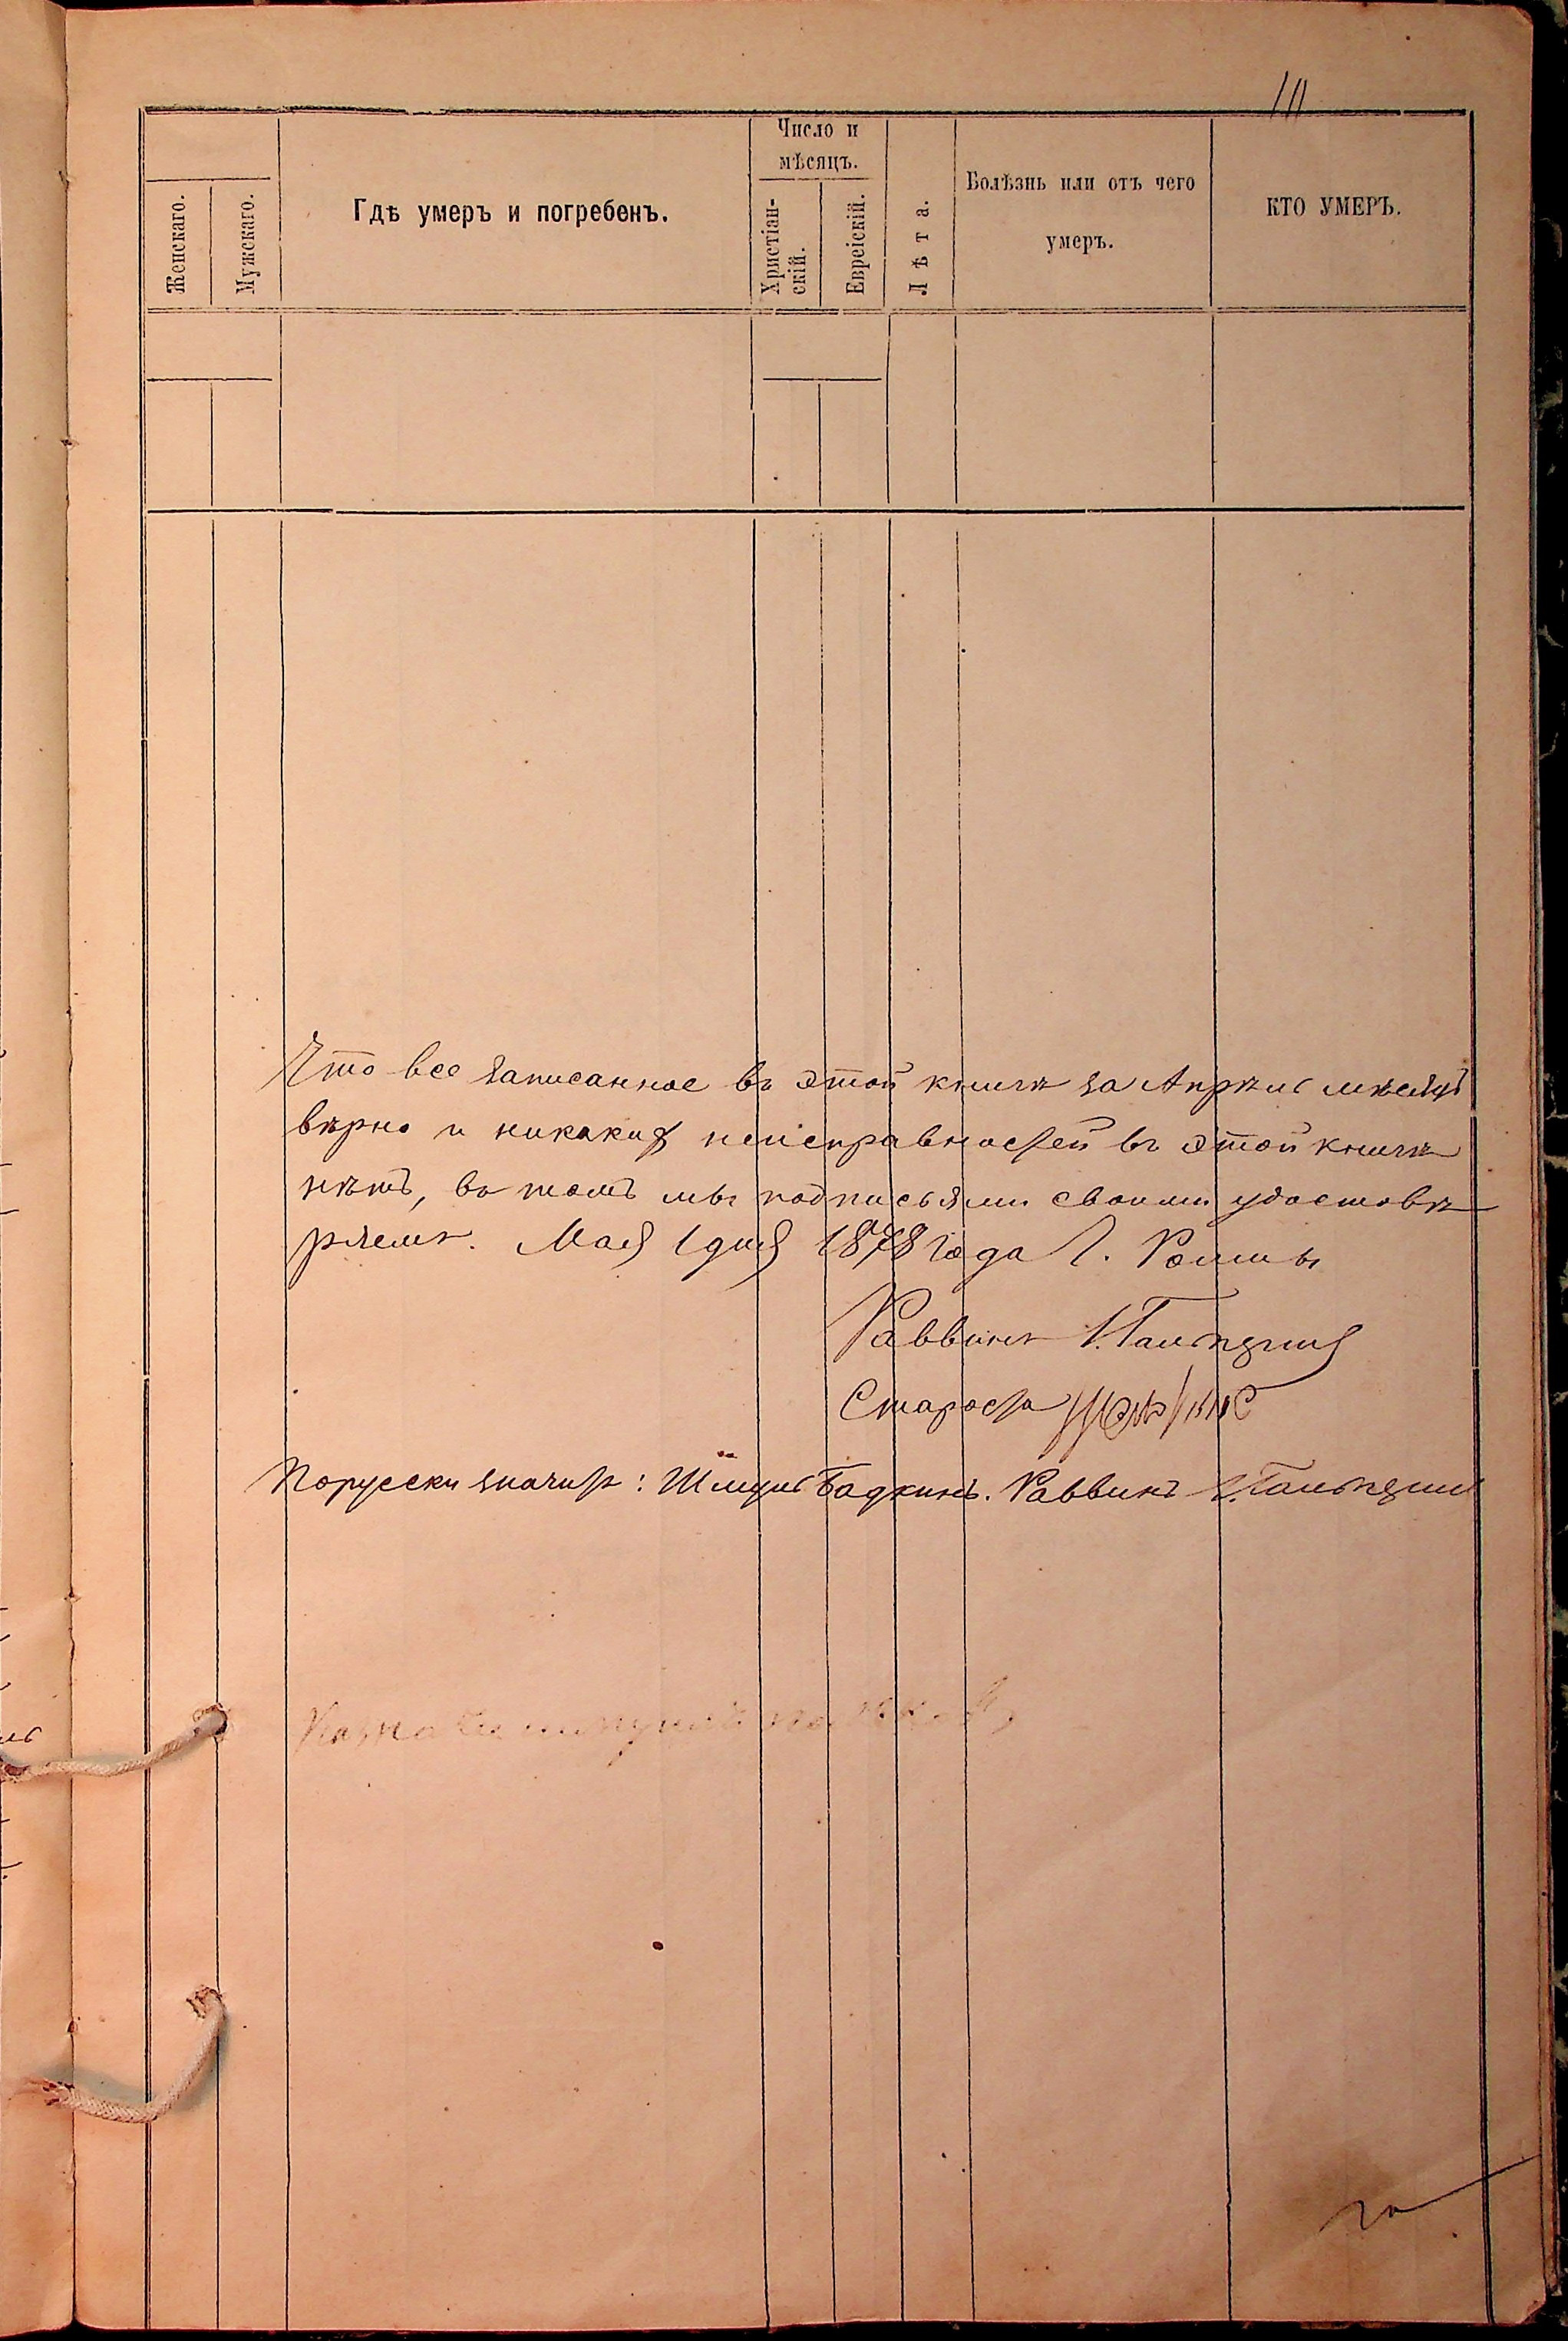 Женскаго.
Мужскаго.
Гдѣ умеръ и погребенъ.
Число и
мѣсяцъ.
Христіан-
скій.
Евреіскій.
Лѣта.
Болѣзнь или отъ чего
умеръ.
КТО УМЕРЪ.
Что все записанное въ этой книгѣ за Апрѣль мѣсяцъ
вѣрно и никакихъ неисправностей въ этой книгѣ
нѣтъ, въ томъ мы подписями своими удостовѣ
ряемъ. Мая 1 дня 1878 года Г. Ромны
Раввинъ
Староста
Порусски значитъ: Шмуил Бадкинъ. Раввинъ